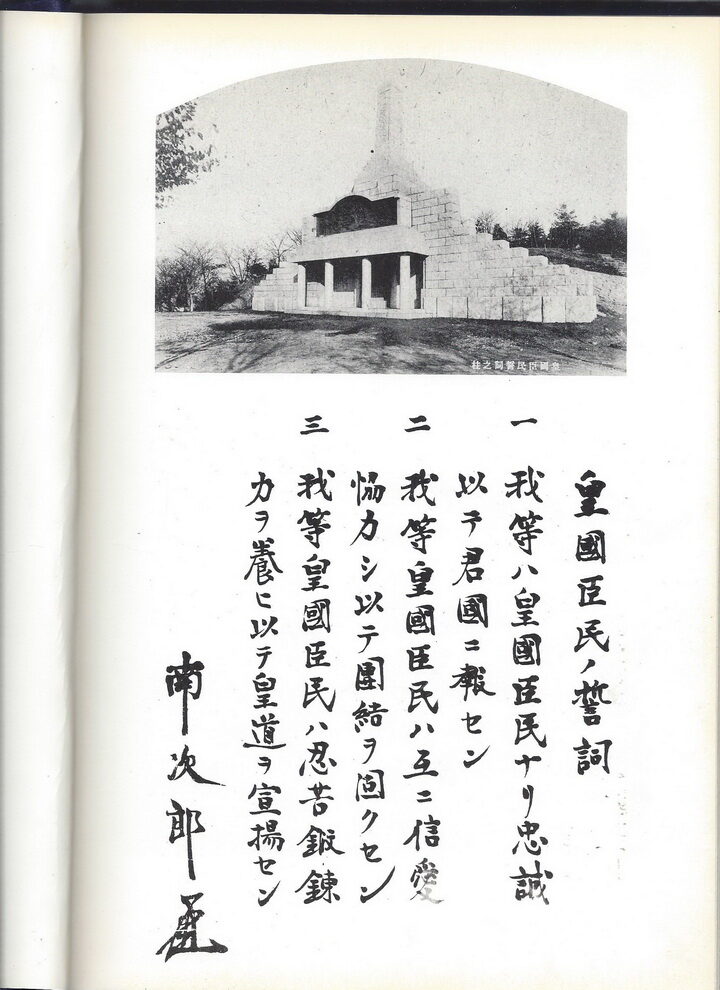 皇國臣民誓詞之柱
皇國臣民ノ誓詞
一 我等ハ皇國臣民ナリ忠誠
以テ君國ニ報セン
二 我等皇國臣民ハ互ニ信愛
恊力シ以テ團結ヲ固クセン
三 我等皇國臣民ハ忍苦鍛錬
力ヲ養ヒ以テ皇道ヲ宣揚セン
南次郎